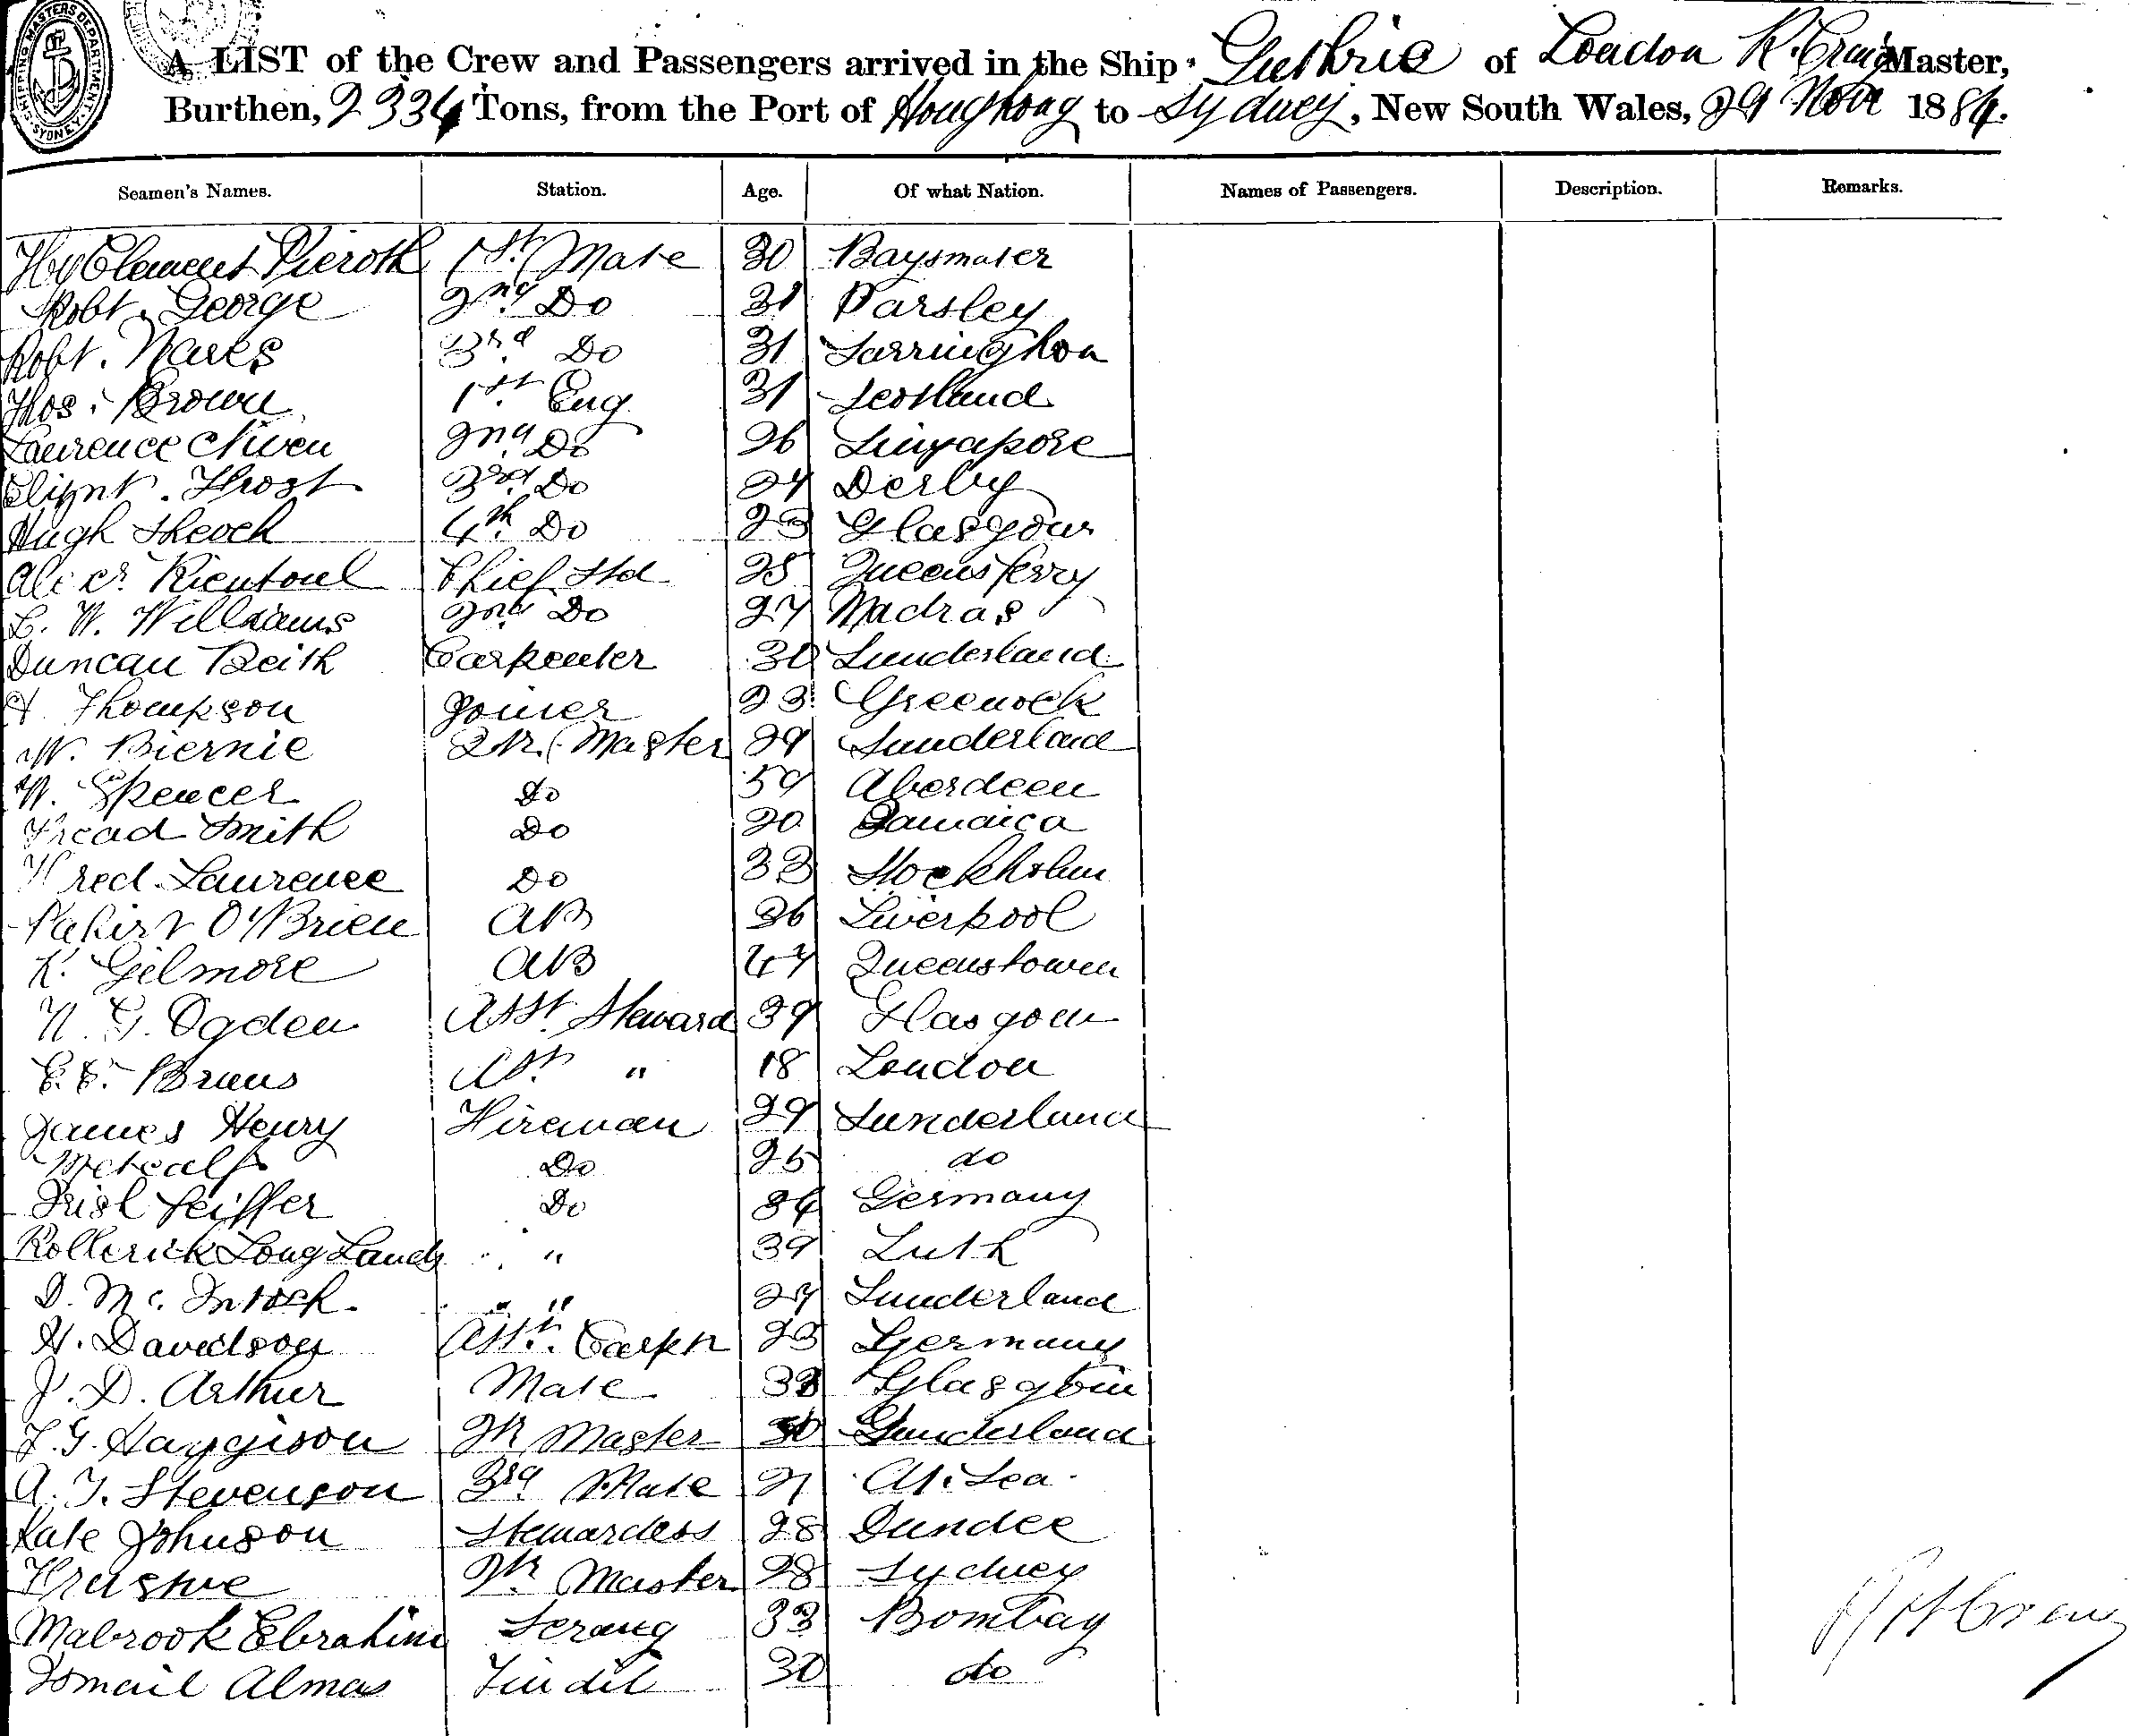 SHIPPING MASTERS DEPARTMENT SYDNEY
A LIST of the Crew and Passengers arrived in the Ship Guthrie of London R. Craig Master,
Burthen, 2334 Tons, from the Port of Hongkong to Sydney, New South Wales, 29 Nov 1884.
Seamen's Names. Station. Age. Of what Nation. Names of Passengers. Description. Remarks.
Hy Clement Pieroth 1st Mate 30 Bayswater
Robt. George 2nd Do 31 Parsley
Robt. Nares 3rd Do 31
Thos. Brown 1st Eng 31 Scotland
Laurence Niven 2nd Do 26 Singapore
Frost 3rd Do 24 Derby
Hugh Sheoch 4th Do 23 Glasgow
Alexr. Rientoul Chief Std 25 Queensferry
C. W. Williams 2nd Do 27 Madras
Duncan Beith Carpenter 30 Sunderland
H. Thompson Joiner 23 Greenock
W. Biernie Qtr. Master 29 Sunderland
W. Spencer Do 59 Aberdeen
Fread Smith Do 20 Jamaica
Fred. Laurence Do 33 Stockholm
O'Brien AB 36 Liverpool
K. Gilmore AB 47 Queenstown
N. G. Ogden Asst. Steward 39 Glasgow
E. E. Bruns Asst. " 18 London
James Henry Fireman 29 Sunderland
Metcalf Do 25 do
Peiffer Do 34 Germany
Rollerick Long Lands " " 39 Luth
D. Mc. Intosh " " 24 Sunderland
H. Davidson Asst. Carpn 23 Germany
J. D. Arthur Mate 33 Glasgow
J. G. Haggison Qr Master 30 Sunderland
A. T. Stevenson 3rd Mate 21 At Sea
Kate Johnson Stewardess 28 Dundee
Qr Master 28 Sydney
Mabrook Ebrahim Serang 33 Bombay
Ismail Almas Tindil 30 do